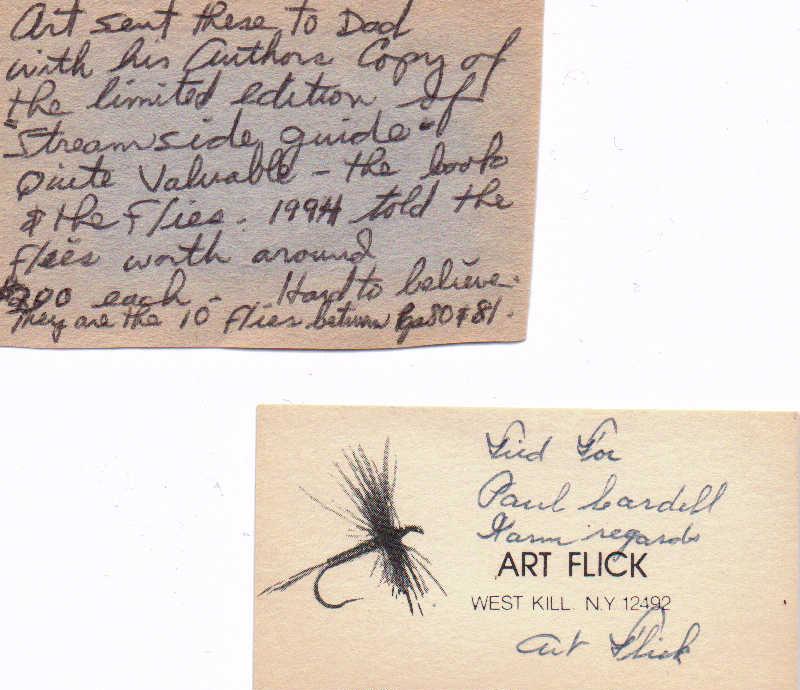 Art sent these to Dad
with his Authors Copy of
the limited edition of
"Streamside guide"
Quite Valuable - the book
& the Flies. 1994 told the
flies worth around
$200 each - Hard to believe.
They are the 10 flies between Pgs 80 & 81.
Tied For
Paul Cardell
Warm regards
ART FLICK
WEST KILL N.Y 12492
Art Flick